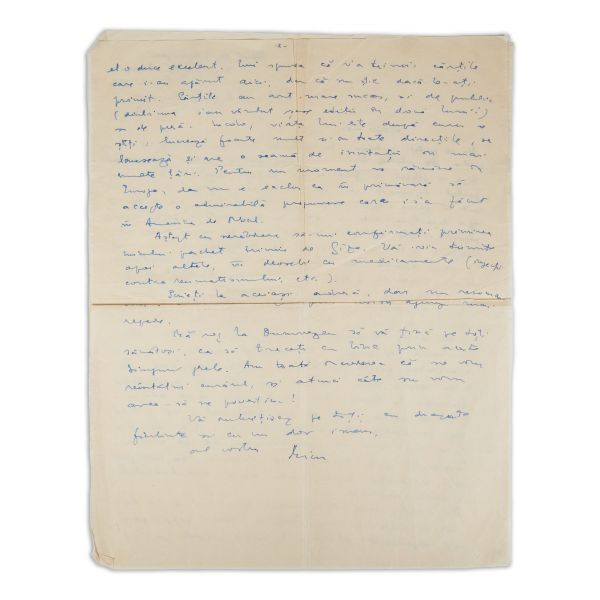 -2-
el o duce excelent. Îmi spunea că v-a trimis cărțile
care i-au apărut aici, dar că nu știe dacă le-ați
primit. Cărțile au avut mare succes, și de public
(ultima i-au vândut ediția în două luni!)
și de presă. Încolo, viața lui este după cum o
știți: lucrează foarte mult și în toate direcțiile, se
și are o seamă de invitații în mai
multe țări. Pentru un moment va rămâne în
Europa, dar nu e exclus ca în primăvară să
accepte o admirabilă propunere care i s-a făcut
în America de Nord.
Aștept cu nerăbdare să-mi confirmați primirea
pachet trimis de Gipa. Vă voi trimite
apoi altele, în deosebi cu medicamente (injecții
contra reumatismului, etc.).
Scrieți la aceiași adresă, dar
ajung mai
repede.
Mă rog la Dumnezeu să vă țină pe toți
sănătoși, ca să treceți cu bine prin aceste
timpuri grele. Am toată încrederea că ne vom
reîntâlni curând, și atunci câte nu vom
avea să ne povestim!
Vă îmbrățișez pe toți cu dragoste
fierbinte și cu un dor imens,
al vostru